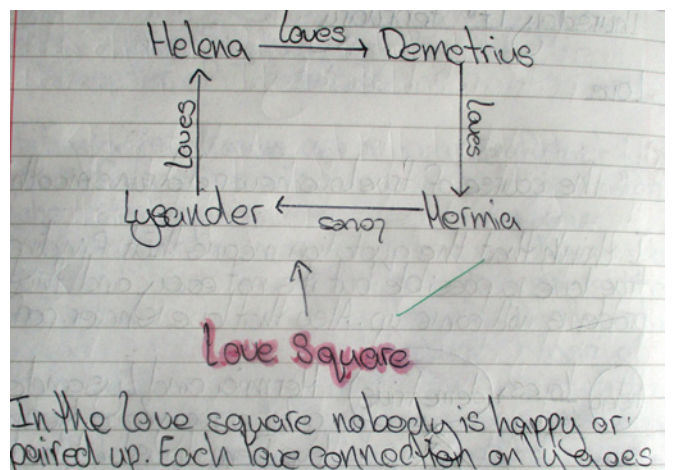 Helena loves Demetrius
loves
loves
Lysander loves Hermia
Love Square
In the love square nobody is happy or
paired up. Each love connection only goes